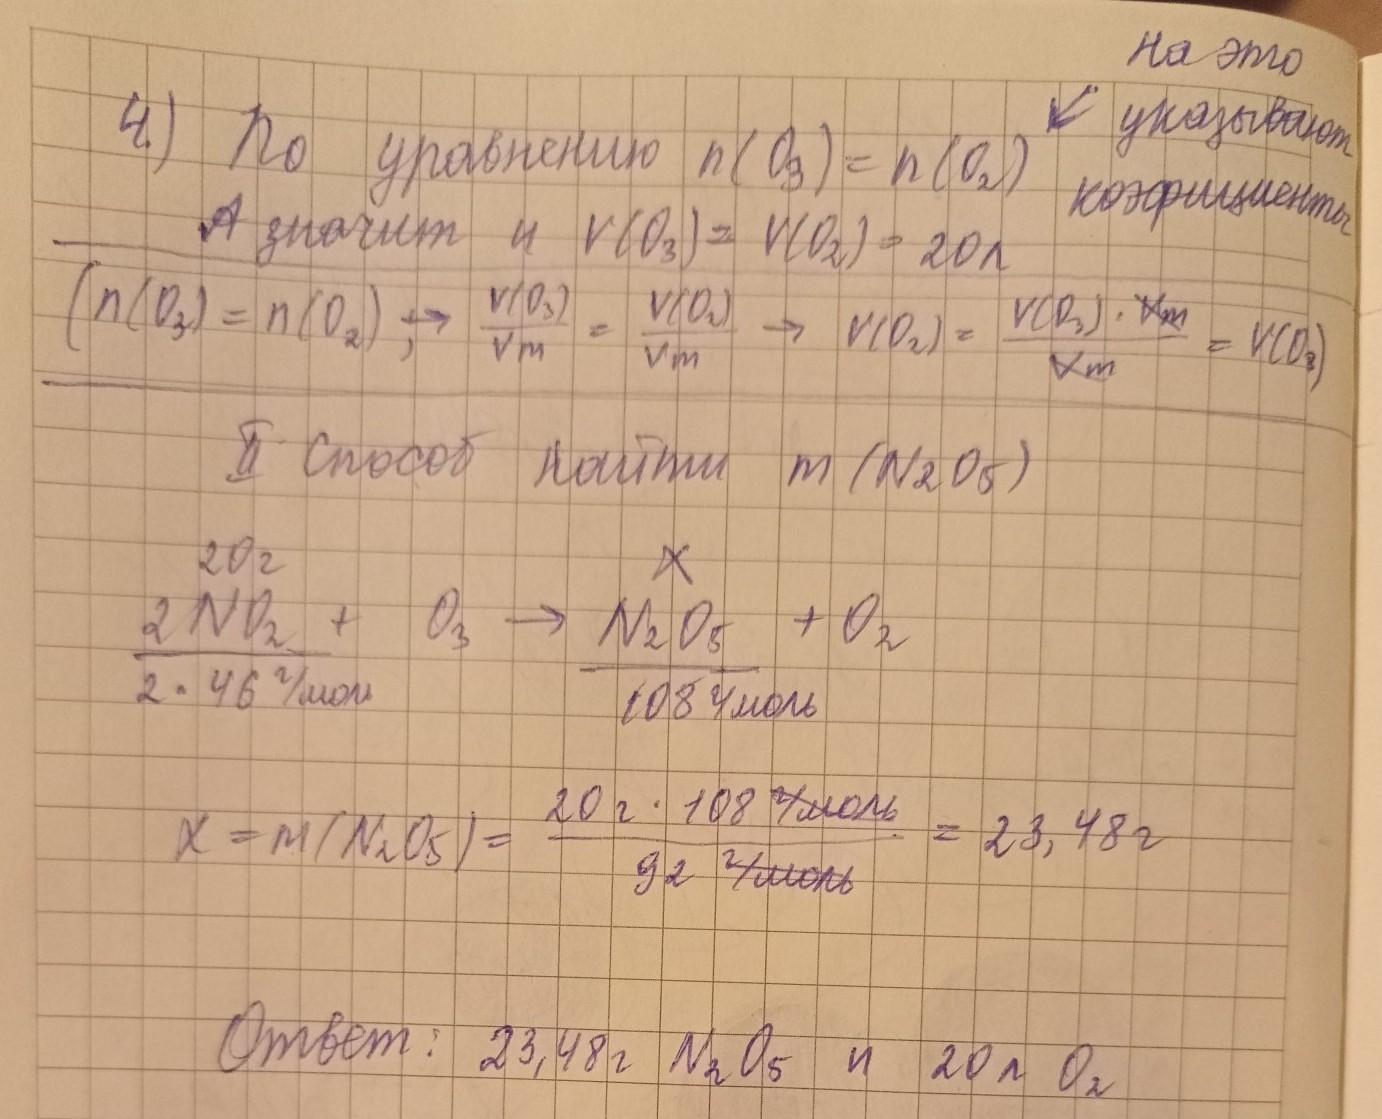 На это
указывают
коэфициенты
4.) По уравнению n(O₃) = n(O₂) ↙
А значит и V(O₃) = V(O₂) = 20л
(n(O₃) = n(O₂) ; → V(O₃)/Vm = V(O₂)/Vm → V(O₂) = V(O₃) · Vm/Vm = V(O₃)
II Способ найти m (N₂O₅)
20г X
2NO₂ + O₃ → N₂O₅ + O₂
2 · 46 г/мол 108 г/моль
X = m(N₂O₅) = 20г · 108 г/моль / 92 г/моль = 23,48г
Ответ: 23,48г N₂O₅ и 20л O₂